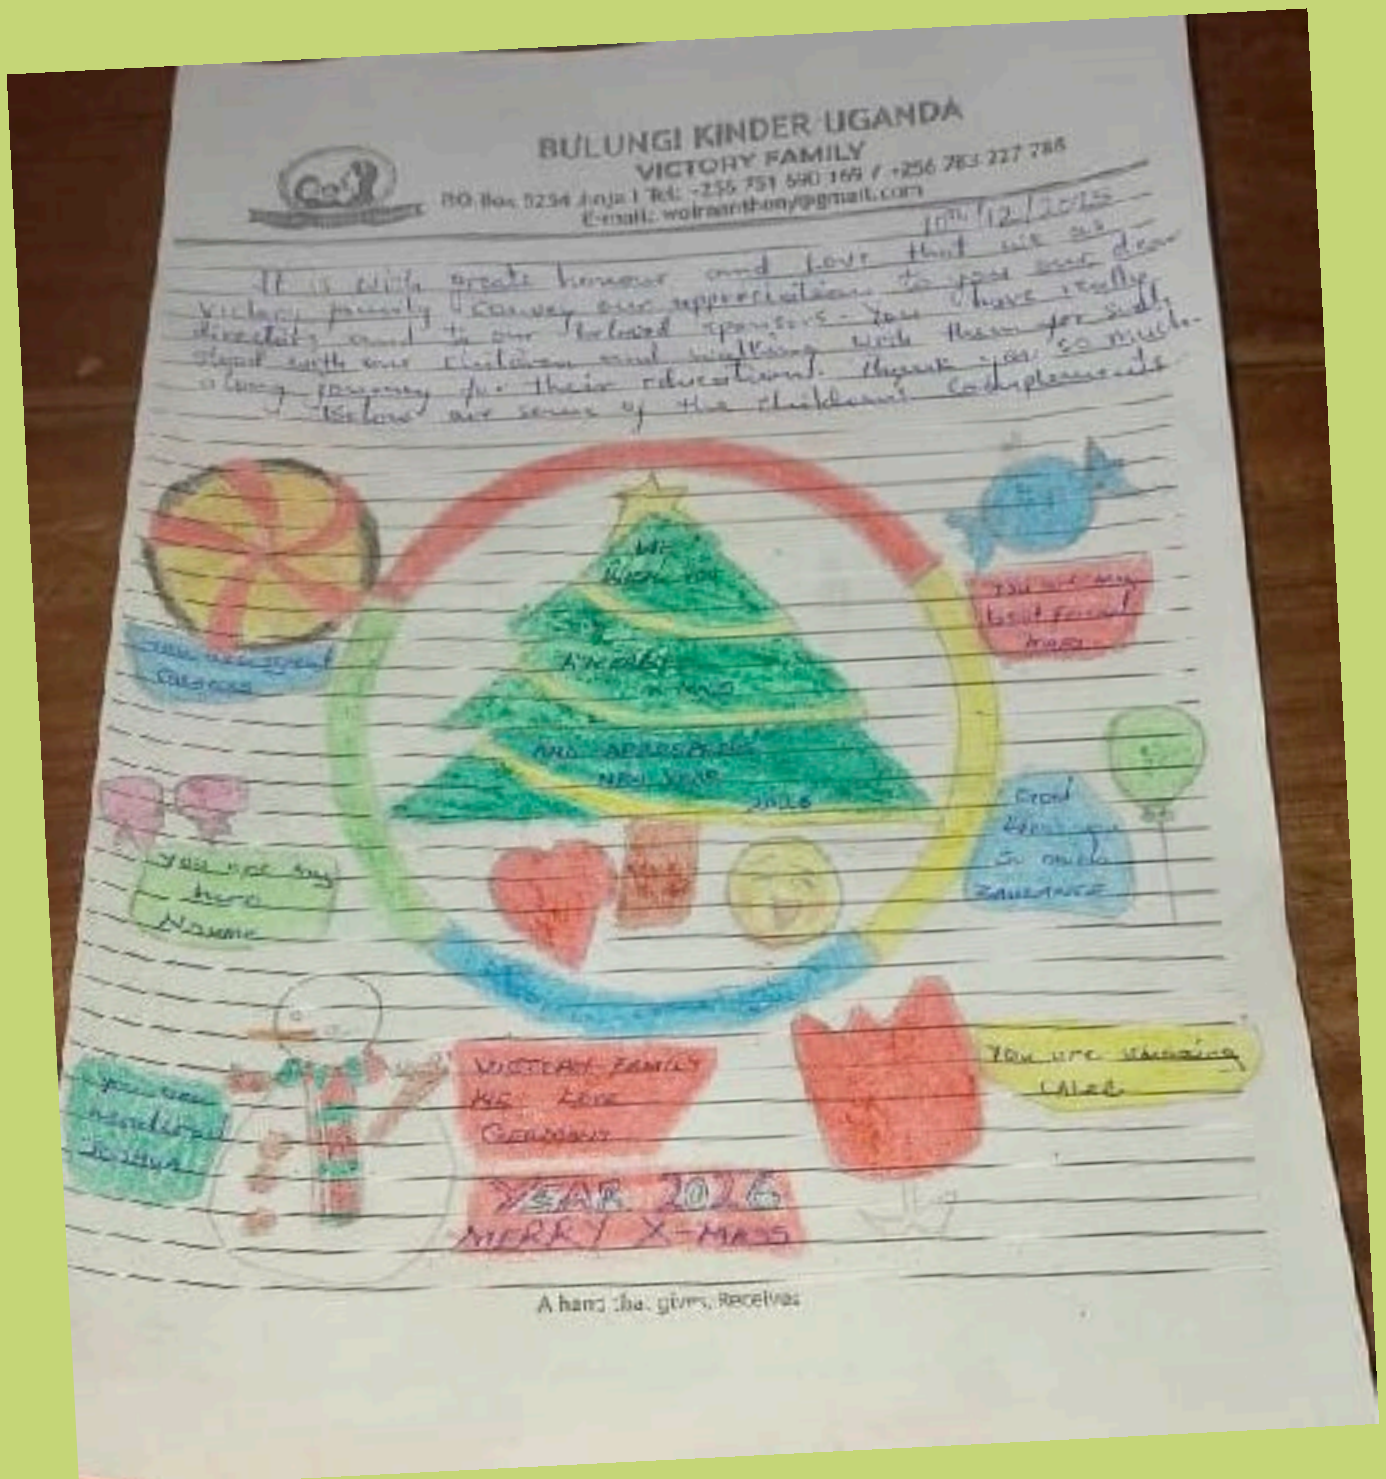 BULUNGI KINDER UGANDA
VICTORY FAMILY
P.O. Box 5254 Jinja | Tel: +256 751 690 169 / +256 783 227 788
E-mail:
10th/12/2025
It is with great honour and Love that we as
Victory family convey our appreciation to you our dear
directors and to our beloved sponsors. You have really
stood with our children and walking with them for such
a long journey for their education. Thank you so much.
Below are some of the children's complements
WE
WISH YOU
A MERRY
X-MAS
AND APROSPEROUS
NEW YEAR
2026
You are my
best friend
You are great
You are my
hero
Naume
God
bless you
so much
You are
VICTORY FAMILY
WE LOVE
GERMANY
You are amazing
YEAR 2026
MERRY X-MASS
A hand that gives, Receives